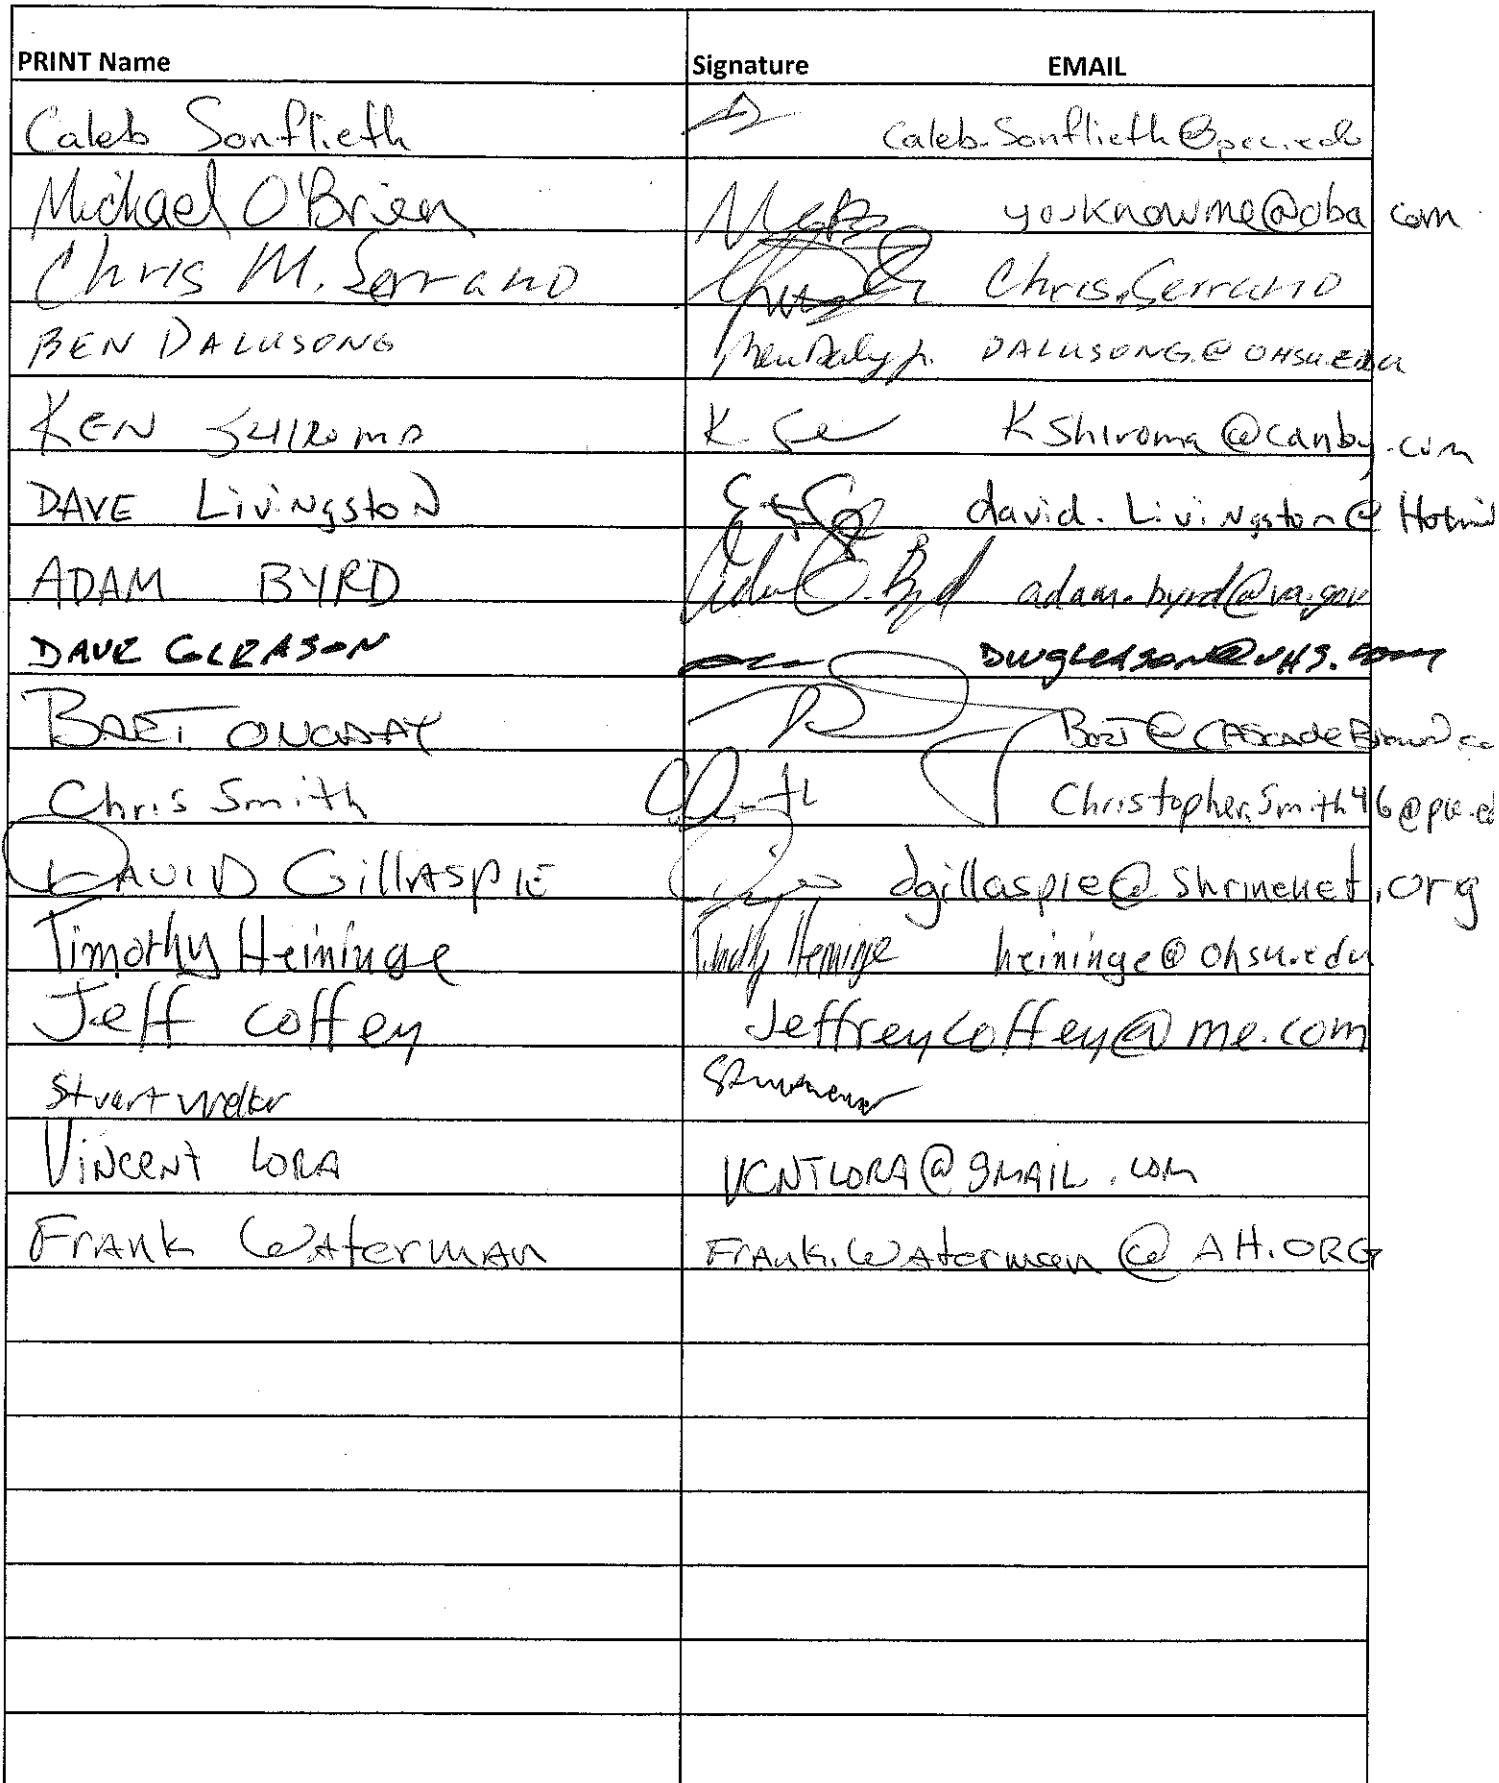 PRINT Name Signature EMAIL
Caleb Sonflieth Caleb.Sonflieth@pcc.edu
Michael O'Brien youknowme@oba.com
Chris M. Serrano Chris.Serrano
BEN DALUSONG DALUSONG@OHSU.EDU
KEN SHIROMA K Shiroma@canby.com
DAVE LiviNgstoN david.LiviNgston@Hotmail
ADAM BYRD Adam C. Byrd adam.byrd@va.gov
DAVE GLEASON DWGLEASON@VHS.com
Chris Smith Christopher.Smith46@pcc.ed
DAVID GillASPIE dgillaspie@shrinenet.org
Timothy Heininge Timothy Heininge heininge@ohsu.edu
Jeff Coffey Jeffreycoffey@me.com
Stuart
VINCENT LORA VCNTLORA@GMAIL.com
FrANK WAterMAN FrANK.WAterman@AH.ORG